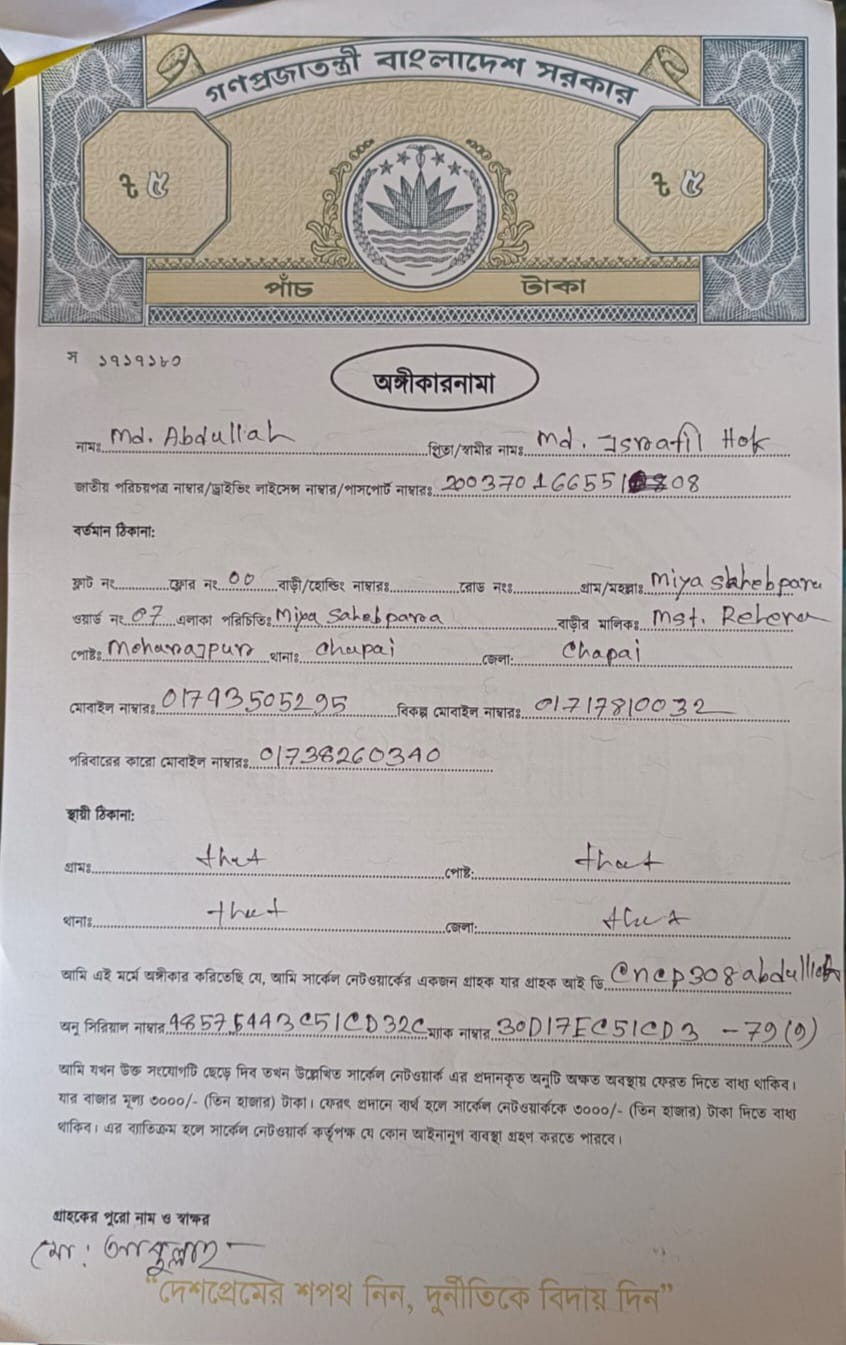 গণপ্রজাতন্ত্রী বাংলাদেশ সরকার
৳ ৫ ৳ ৫
পাঁচ টাকা
স ১৭১৭১৮০
অঙ্গীকারনামা
নামঃ Md. Abdullah পিতা/স্বামীর নামঃ Md. Israfil Hok
জাতীয় পরিচয়পত্র নাম্বার/ড্রাইভিং লাইসেন্স নাম্বার/পাসপোর্ট নাম্বারঃ 20037016655108
বর্তমান ঠিকানা:
ফ্লাট নং ফ্লোর নং 00 বাড়ী/হোল্ডিং নাম্বারঃ রোড নংঃ গ্রাম/মহল্লাঃ Miya
ওয়ার্ড নং 07 এলাকা পরিচিতিঃ Miya Sahebpara বাড়ীর মালিকঃ Mst. Rehena
পোষ্টঃ Moharajpur থানাঃ Chapai জেলা: Chapai
মোবাইল নাম্বারঃ 01793505295 বিকল্প মোবাইল নাম্বারঃ 01717810032
পরিবারের কারো মোবাইল নাম্বারঃ 01738260340
স্থায়ী ঠিকানা:
গ্রামঃ that পোষ্ট: that
থানাঃ that জেলা: that
আমি এই মর্মে অঙ্গীকার করিতেছি যে, আমি সার্কেল নেটওয়ার্কের একজন গ্রাহক যার গ্রাহক আই ডি cncp308abdullah
অনু সিরিয়াল নাম্বার 48575443C51CD32C ম্যাক নাম্বার 30D17EC51CD3 - 79(9)
আমি যখন উক্ত সংযোগটি ছেড়ে দিব তখন উল্লেখিত সার্কেল নেটওয়ার্ক এর প্রদানকৃত অনুটি অক্ষত অবস্থায় ফেরত দিতে বাধ্য থাকিব।
যার বাজার মূল্য ৩০০০/- (তিন হাজার) টাকা। ফেরৎ প্রদানে ব্যর্থ হলে সার্কেল নেটওয়ার্ককে ৩০০০/- (তিন হাজার) টাকা দিতে বাধ্য
থাকিব। এর ব্যতিক্রম হলে সার্কেল নেটওয়ার্ক কর্তৃপক্ষ যে কোন আইনানুগ ব্যবস্থা গ্রহণ করতে পারবে।
গ্রাহকের পুরো নাম ও স্বাক্ষর
মো: আব্দুল্লাহ
"দেশপ্রেমের শপথ নিন, দুর্নীতিকে বিদায় দিন"